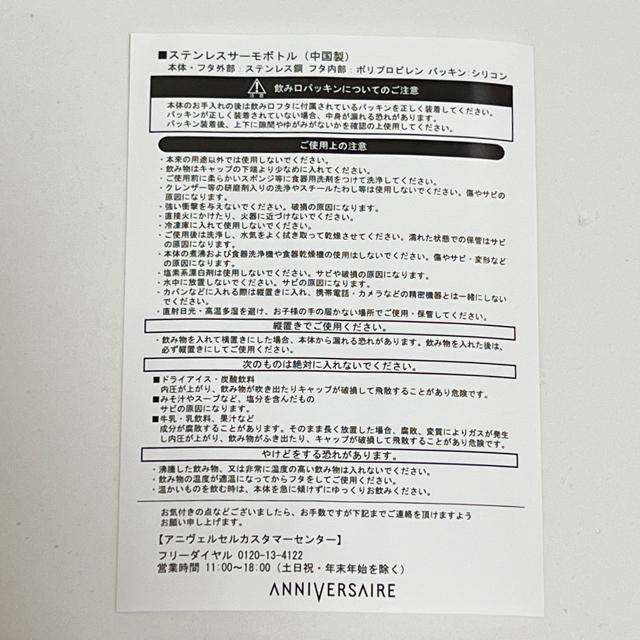 ■ステンレスサーモボトル（中国製）
本体・フタ外部：ステンレス鋼 フタ内部：ポリプロピレン パッキン：シリコン
飲み口パッキンについてのご注意
本体のお手入れの後は飲み口フタに付属されているパッキンを正しく装着してください。
パッキンが正しく装着されていない場合、中身が漏れる恐れがあります。
パッキン装着後、上下に隙間やゆがみがないかを確認の上使用してください。
ご使用上の注意
・本来の用途以外では使用しないでください。
・飲み物はキャップの下端より少なめに入れてください。
・ご使用前に柔らかいスポンジ等に食器用洗剤をつけて洗浄してください。
・クレンザー等の研磨剤入りの洗浄やスチールたわし等は使用しないでください。傷やサビの
原因になります。
・強い衝撃を与えないでください。破損の原因になります。
・直接火にかけたり、火器に近づけないでください。
・冷凍庫に入れて使用しないでください。
・ご使用後は洗浄し、水気をよく拭き取って乾燥させてください。濡れた状態での保管はサビ
の原因になります。
・本体の煮沸および食器洗浄機や食器乾燥機の使用はしないでください。傷やサビ・変形など
の原因になります。
・塩素系漂白剤は使用しないでください。サビや破損の原因になります。
・水中に放置しないでください。サビの原因になります。
・カバンなどに入れる際は縦置きに入れ、携帯電話・カメラなどの精密機器とは一緒にしない
でください。
・直射日光・高温多湿を避け、お子様の手の届かない場所でご使用・保管してください。
縦置きでご使用ください。
・飲み物を入れて横置きにした場合、本体から漏れる恐れがあります。飲み物を入れた後は、
必ず縦置きにしてご使用ください。
次のものは絶対に入れないでください。
■ドライアイス・炭酸飲料
内圧が上がり、飲み物が吹き出たりキャップが破損して飛散することがあり危険です。
■みそ汁やスープなど、塩分を含んだもの
サビの原因になります。
■牛乳・乳飲料、果汁など
成分が腐敗することがあります。そのまま長く放置した場合、腐敗、変質によりガスが発生
し内圧が上がり、飲み物がふき出たり、キャップが破損して飛散することがあり危険です。
やけどをする恐れがあります。
・沸騰した飲み物、又は非常に温度の高い飲み物は入れないでください。
・飲み物の温度が適温になってからフタをしてご使用ください。
・温かいものを飲む時は、本体を急に傾けずにゆっくりお飲みください。
お気付きの点などございましたら、お手数ですが下記までご連絡を頂けますよう
お願い申し上げます。
【アニヴェルセルカスタマーセンター】
フリーダイヤル 0120-13-4122
営業時間 11:00～18:00（土日祝・年末年始を除く）
ANNIVERSAIRE